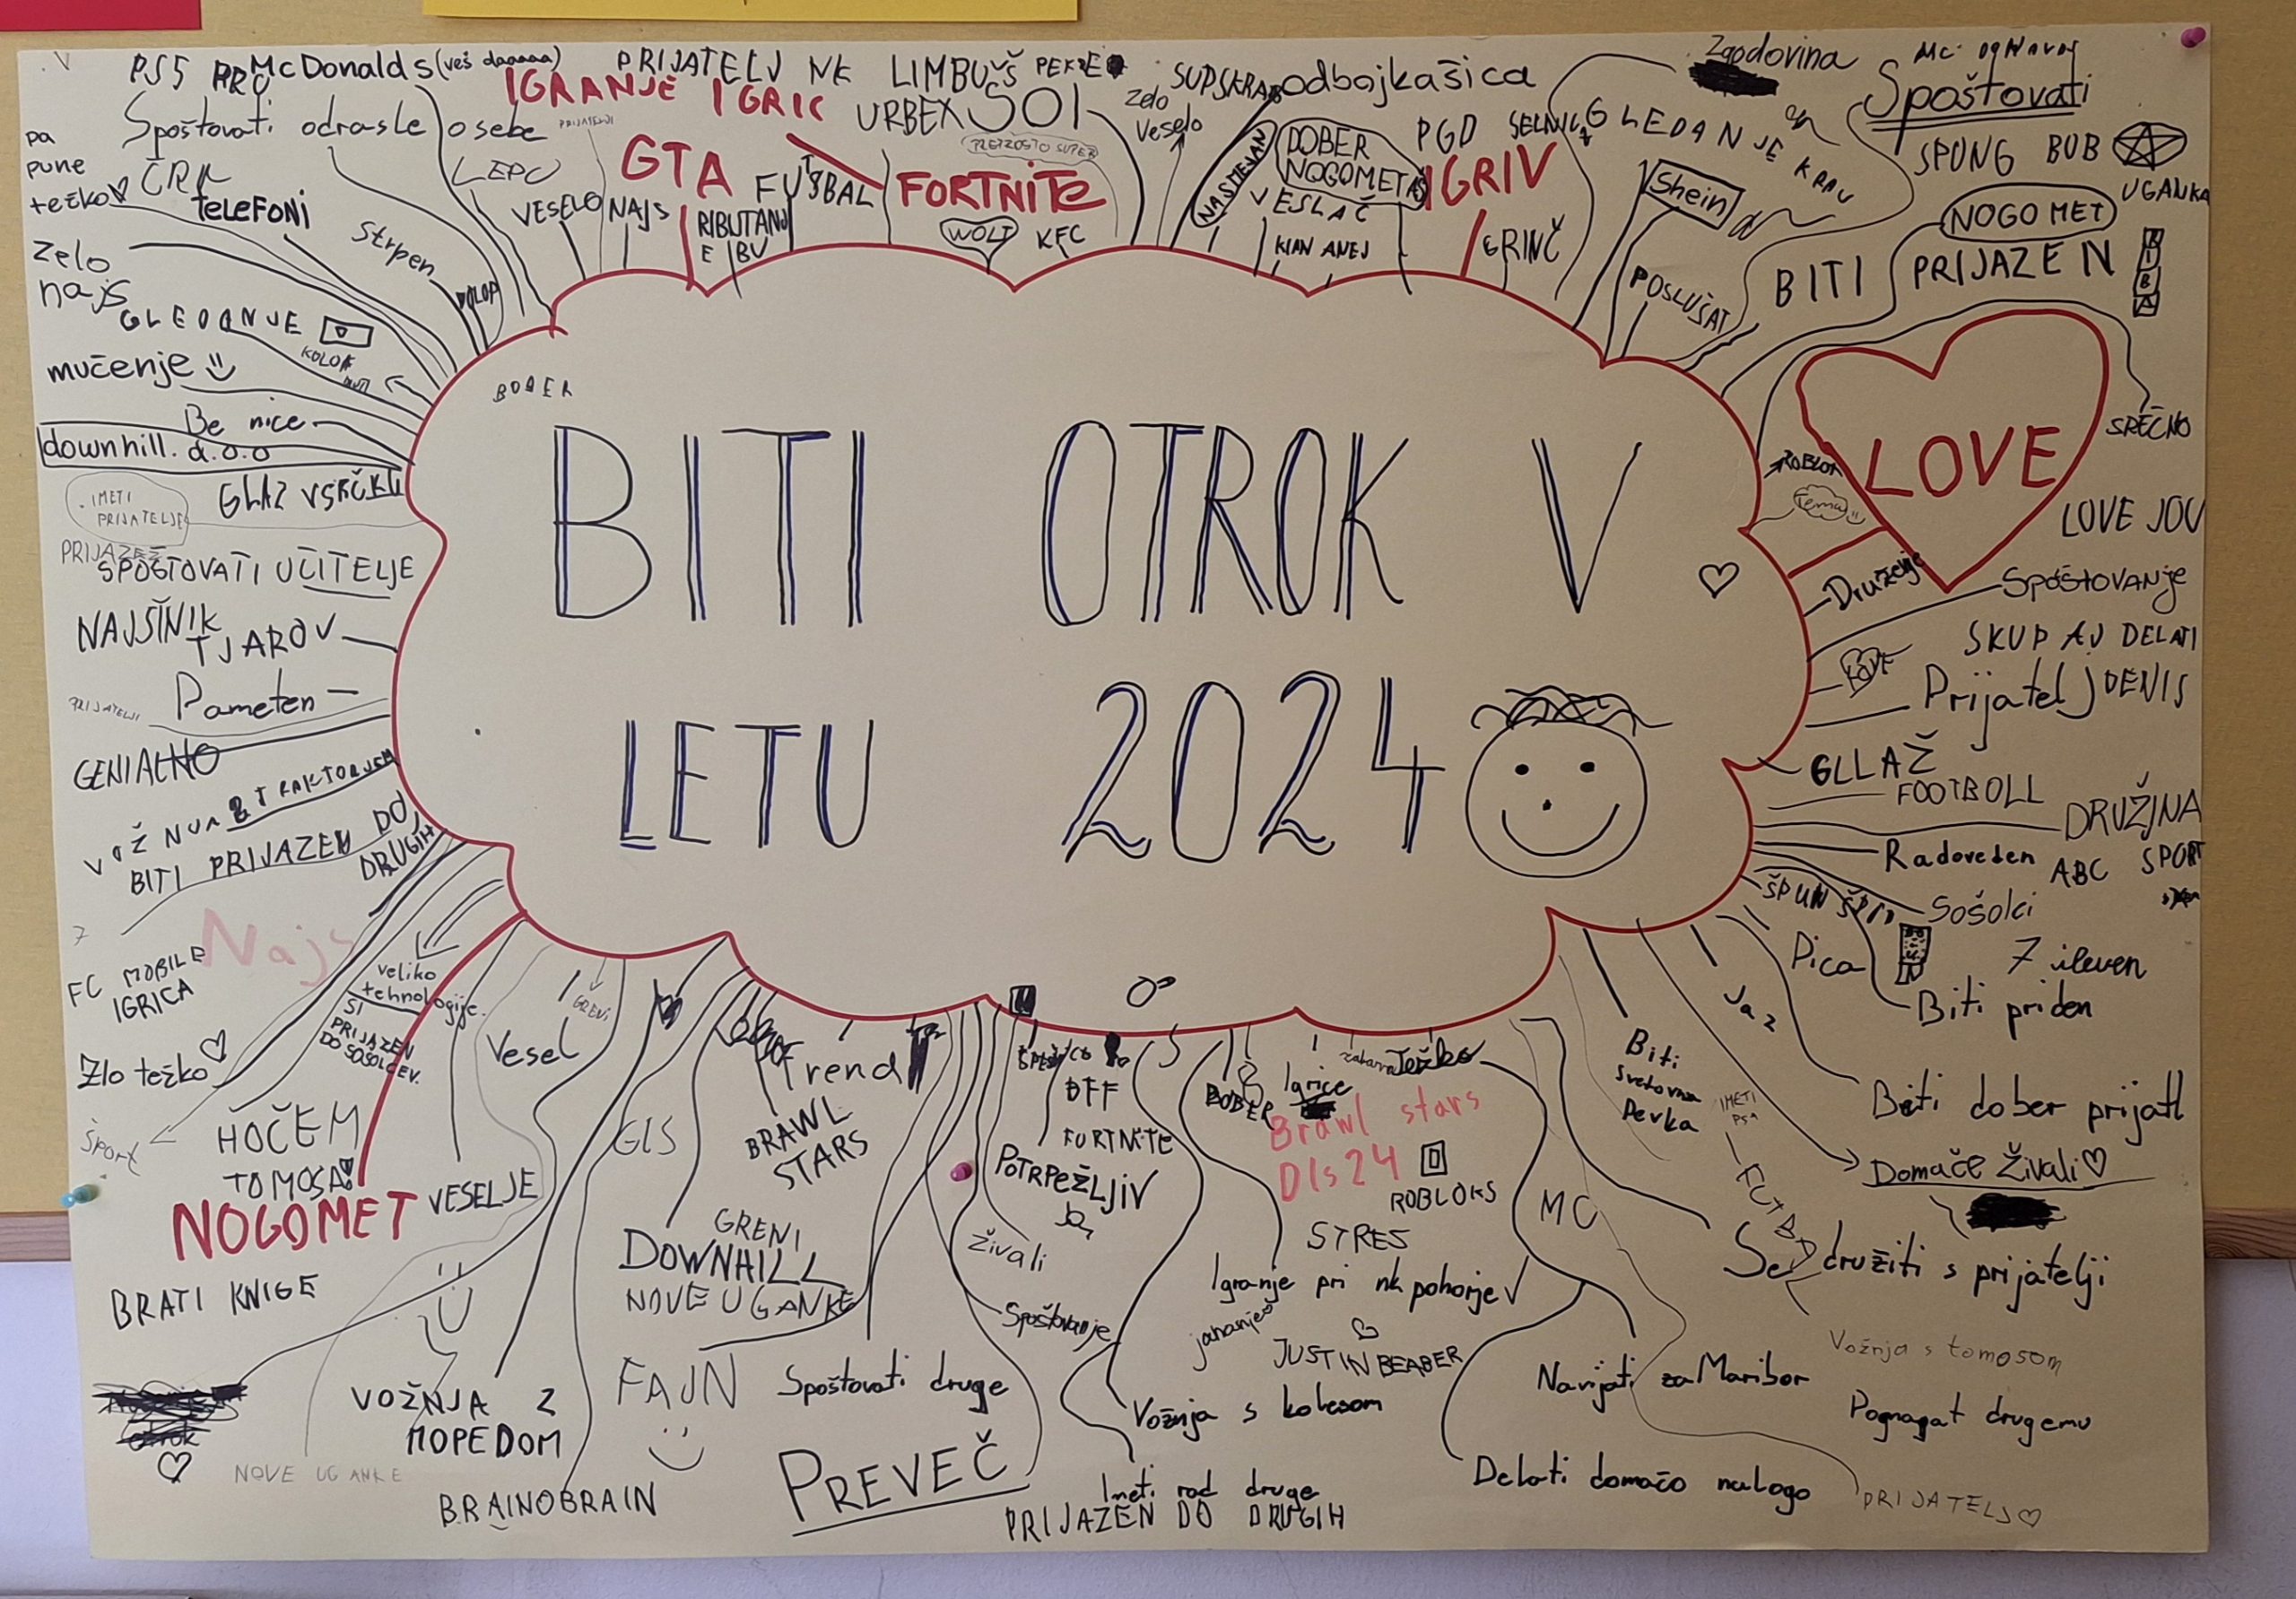 PS5 PRO
McDonalds (veš daaaaa)
IGRANJE IGRIC
PRIJATELJ NK LIMBUŠ
URBEX
Zelo
Veselo
odbojkašica
Zgodovina
Spoštovati
Spoštovati odrasle osebe
PRIJATELJI
pa
pune
težko
TELEFONI
LEPO
VESELO
NAJS
GTA
FUTSBAL
FORTNITE
WOLT
KFC
NASMEJAN
DOBER
NOGOMETAŠ
VESLAČ
KIAN ANEJ
PGD SELNICA
IGRIV
GRINČ
GLEDANJE KRAV
Shein
POSLUŠAT
SPUNG BOB
UGANKA
NOGOMET
BITI PRIJAZEN
RIBA
Strpen
zelo
najs
GLEDANJE
mučenje
Be nice
downhill. d.o.o
GLAZ VSRČKU
IMETI
PRIJATELJE
SPOŠTOVATI UČITELJE
NAJSINIK
TJAROV
PRIJATELJI
Pameten
GENIALNO
BITI PRIJAZEN DO
DRUGIH
BOBER
BITI OTROK V
LETU 2024
LOVE
SREČNO
ROBLOX
Tema
LOVE JOU
Druženje
Spoštovanje
SKUPAJ DELATI
LOVE
Prijatelj DENIS
GLLAŽ
FOOTBOLL
DRUŽJNA
Radoveden
ABC SPORT
ŠPUN ŠPIN
Sošolci
Pica
7 ileven
Jaz
Biti priden
Biti dober prijatl
Domače živali
Se družiti s prijatelji
Vožnja s tomosom
Pognagat drugemu
PRIJATELJ
Najs
FC MOBILE
IGRICA
veliko
tehnologije
SI
PRIJAZEN
DO SOŠOLCEV.
Zlo težko
šport
HOČEM
TOMOSA!
NOGOMET
VESELJE
Vesel
GRENI
BRATI KNIGE
otrok
NOVE UGANKE
VOŽNJA Z
MOPEDOM
BRAINOBRAIN
GLS
Trend
BRAWL
STARS
GRENI
DOWNHILL
NOVE UGANKE
FAJN
Spoštovati druge
PREVEČ
BFF
FORTNITE
POTRPEŽLJIV
živali
Spoštovanje
BOBER
Igrice
zabavna
Težko
Brawl stars
Dls24
ROBLOKS
STRES
Igranje pri nk pohorje
jahanje
JUSTIN BEABER
Vožnja s kolesom
Imeti rad druge
PRIJAZEN DO DRUGIH
MC
Biti
svetovna
Pevka
IMETI
PSA
Navijati za Maribor
Delati domačo nalogo